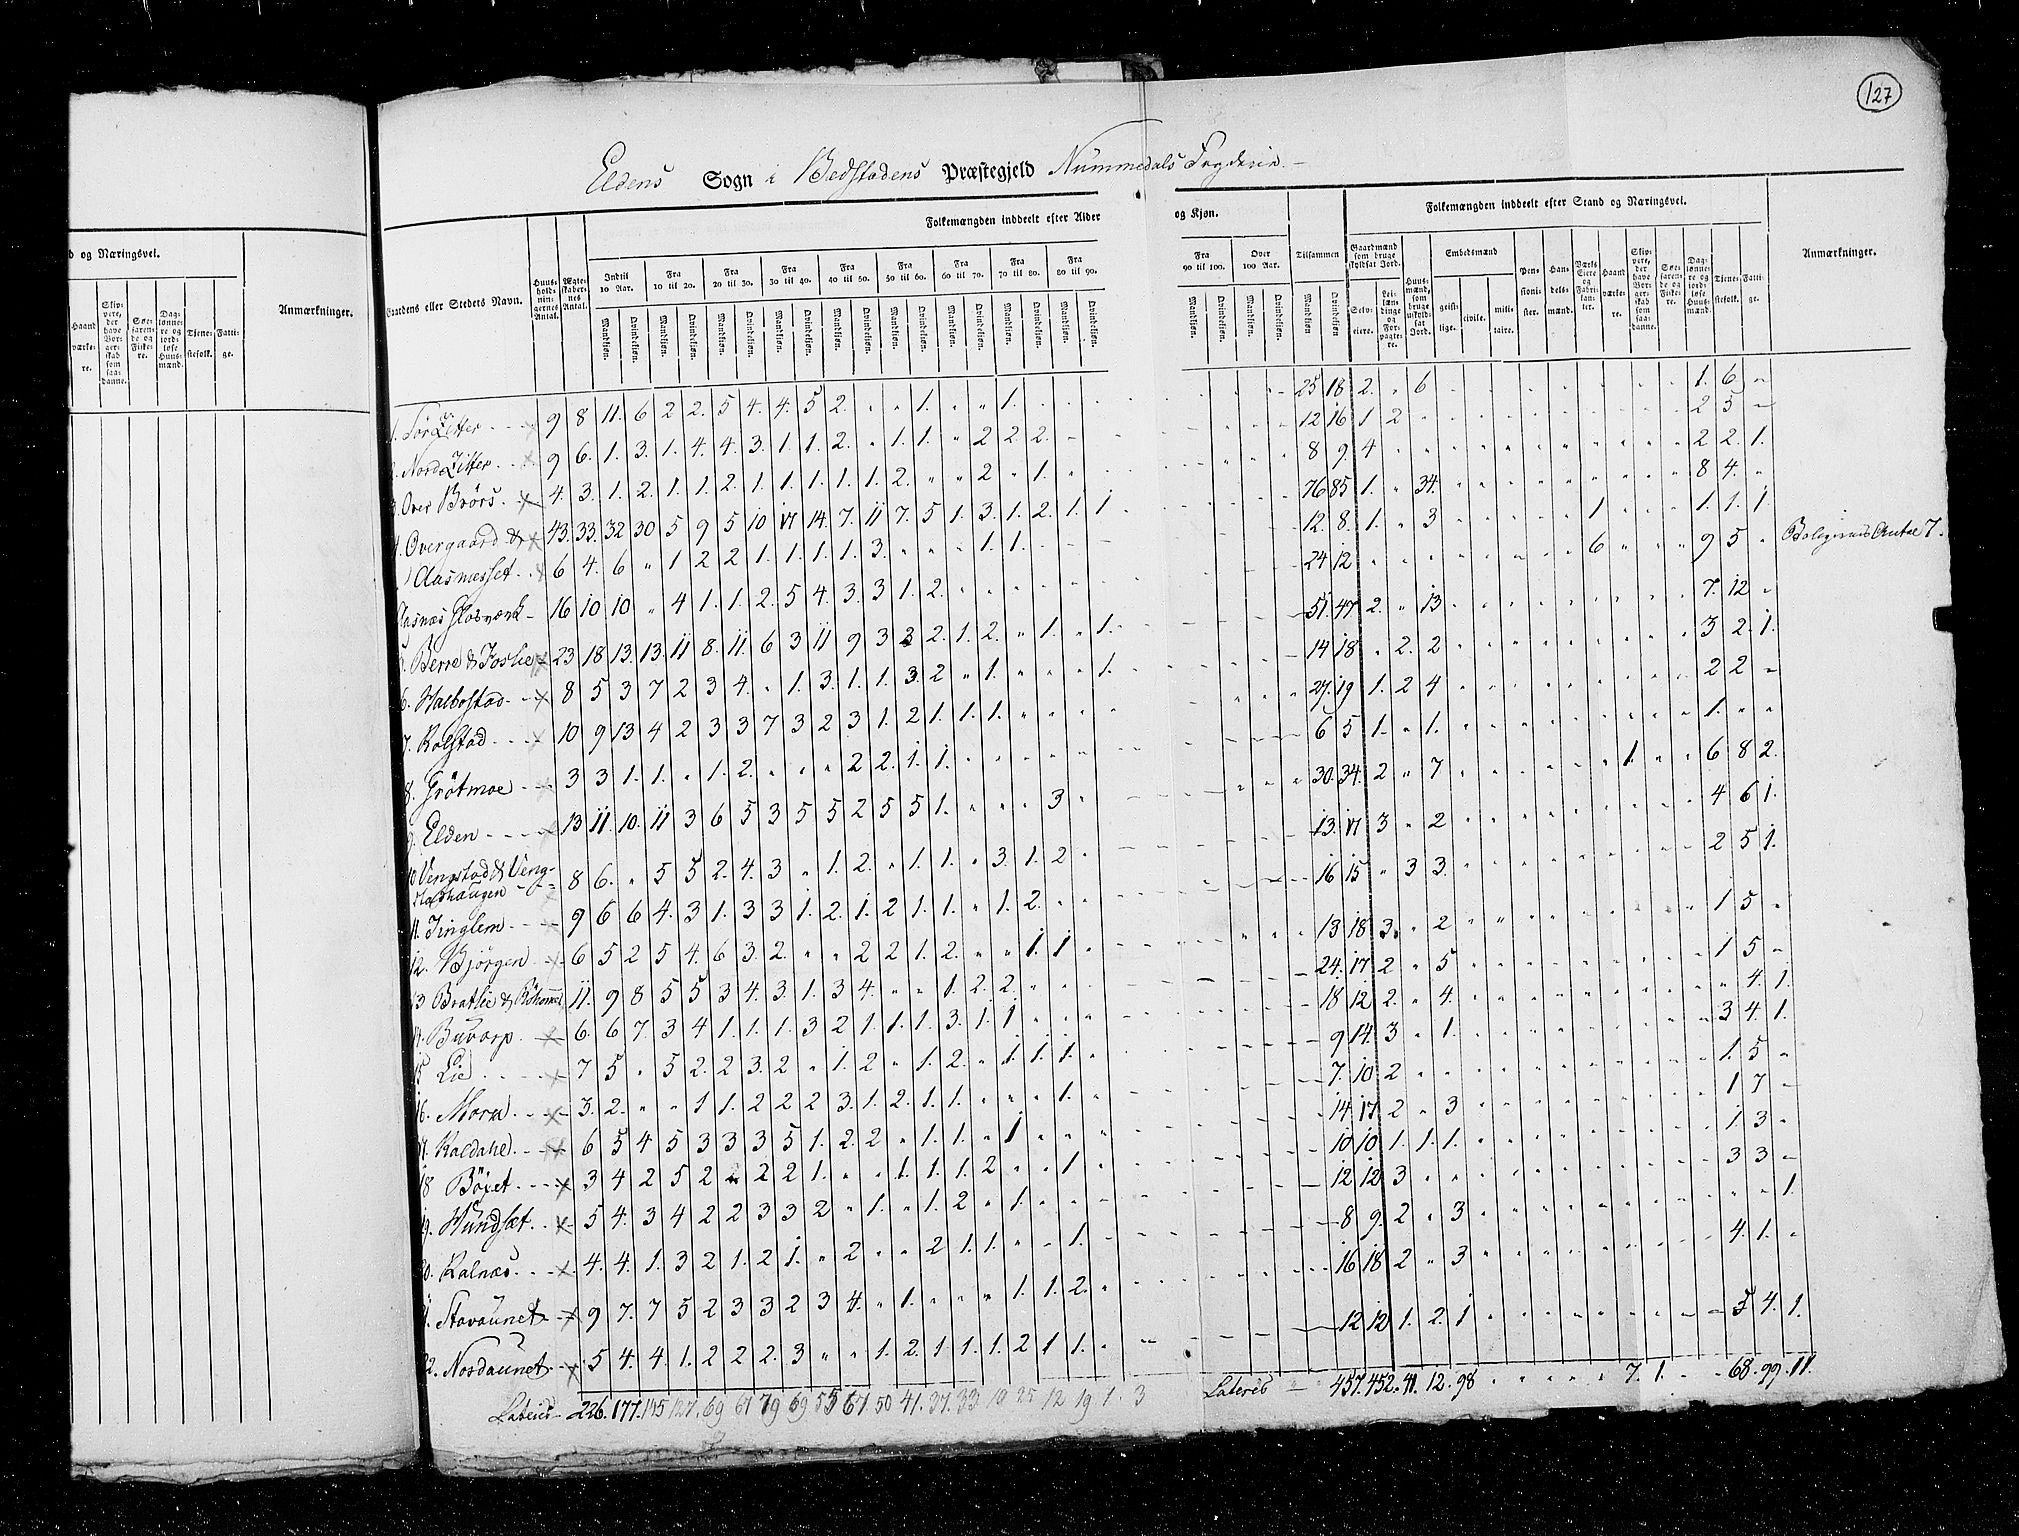 127
Eldens Sogn i Bedstadens Præstegjeld Nummedals Fogderie.
Folkemængden inddeelt efter Alder og Kjøn.
Folkemængden inddeelt efter Stand og Næringsvei.
d og Næringsvei.
Anmærkninger.
Gaardens eller Stedets Navn.
Huus-hold-nin-gernes Antal.
Ægte-skaber-nes Antal.
Indtil 10 Aar.
Fra 10 til 20.
Fra 20 til 30.
Fra 30 til 40.
Fra 40 til 50.
Fra 50 til 60.
Fra 60 til 70.
Fra 70 til 80.
Fra 80 til 90.
Fra 90 til 100.
Over 100 Aar.
Tilsammen
Mandkjøn. Qvindekjøn.
Gaardmænd som bruge skyldsat Jord.
Selv-eiere.
Lei-læn-dinge og For-pagte-re.
Huus-mænd, som bruge uskyld-sat Jord.
Embedsmænd
geist-lige. civile. mili-taire.
Pen-sioni-ster.
Han-dels-mænd.
Værks Eiere og Fabri-kan-ter.
Haand værke-re.
Skip-pere, der have Bor-ger-skab som saa-danne.
Søe-faren-de og Fiske-re.
Dag-lønne-re og jord-løse Huus-mænd.
Tjene-stefolk.
Fatti-ge.
Anmærkninger.
9 8 11. 6 2 2. 5 4. 4. 5 2. 1. 1. 25 18 2. 6 1. 6
9 6. 1. 3. 1. 4. 4. 3. 1. 1. 2. 1. 1. 2 2 2. 12 16 1 2 2 5
3. Over Brörs. 4. 3. 1. 2. 1. 1. 2. 1. 1. 1. 1. 1. 2. 2 1. 8 9. 4 2 2. 1.
4. Overgaard 43. 33. 32 30 5 9 5 10 17 14. 7. 11 7. 5 1. 3. 1. 2. 1. 1 76 85 1. 34. 8 4.
Aasnæsset. 6 4. 6 1 2 2 1. 1. 1. 1. 3. 1. 1. 12. 8. 1. 3 1 1. 1. 1
16 10 10 4 1. 1. 2. 5 4. 3. 3 1. 2. 24 12 6 9 5 Antal 7.
5. Berre & Foslie 23 18 13. 13. 11 8. 11. 6 3 11 9 3 3 2. 1. 2. 1. 1. 51. 47 2. 13 7. 12
6. 8 5 3 7 2 3 4. 1. 3. 1. 1. 3. 2 1. 1. 14 18 2. 2 3 2. 1.
7. Kolstad 10 9 13 4 2 3 3 7 3 2 3 1. 2 1. 1. 1. 27. 19 1. 2 4 2 2
8. Grötmoe 3 3 1. 1. 1. 2. 2 2. 1. 1. 6 5 1. 1. 1.
9. Elden 13 11. 10. 11 3 6 5 3 5 5 2 5 5 1. 3. 30. 34. 2 7 1. 6 8 2.
10 Vengstad & Veng-
stadhaugen 8 6. 5 5 2. 4. 3 1. 2. 1. 1. 3. 1. 2 13. 17 3 2 4 6 1.
11. Tinglem 9 6 6 4. 3 1. 3 3 1. 2. 1. 2 1. 1. 1. 2. 16 15 3 3. 2 5 1.
12. Bjørgen 6 5 2 5 4. 6 3. 2. 2 2 1. 2. 1. 1. 13 18 3. 2 1 5
13 Bratlie & 11. 9 8 5 5 3 4. 3. 1. 3 4. 1. 2. 2. 24. 17 2 5 1 5
14. Buvarp 6. 6 7. 3 4 1. 1. 1. 3 2 1. 1. 1. 3. 1. 1 18 12 2. 4. 4. 1.
15 Lie 7 5 5 2. 2 3. 2 1. 2 1. 2. 1. 1. 1. 9 14. 3 1. 3 4. 1.
16. Moen 3. 2. 1 1. 2 2 2 3. 1. 2. 1. 1. 1. 7. 10 2 1. 5
17. Kaldahl 6 5 4 5 3 3 3 5 1. 2. 2 1. 1. 1 14. 17. 2 3 1 7
18 Böget 3 4 2 5 2 2 2 1. 1. 1. 1. 2 1. 10 10 1. 1. 1. 1. 3
19. Hundset 5 4. 3 4 2 2 3 3 2 1. 1. 2 1. 12 12 3 3 3
20. Kalnæs 4. 4. 1. 3 2 1. 2 1. 2 2 1. 1. 1. 8 9. 2 3 1.
21. Stavaunet 9 7. 7 5 2 3 3 2 3 4. 1. 1. 1. 2. 16 18 2 3 4. 1.
22. Nordaunet 5 4. 4. 1. 2 2 2. 3 1. 2. 1 1. 1. 2 1 1. 12 12 1. 2. 1 5 4. 1.
Lateris 226. 177. 145 127. 69 67 79 69 55 67 50 41. 37. 33 19 25 12 19 1. 3
Lateris 457. 452. 41. 12. 98 7. 1. 68. 99. 11.